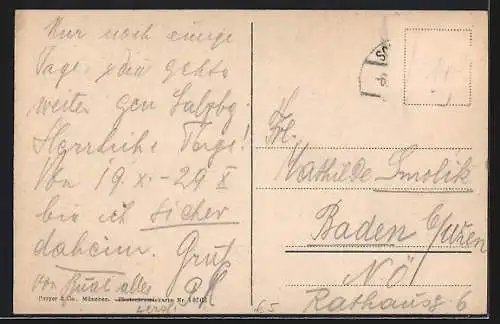 Nur noch einige
Tage, dann gehts
weiter gen Salzbg.
Herrliche Tage!
Von 19. X. - 29 X
bin ich sicher
daheim. Gruß
von alles
Purger & Co., München. Photochromiekarte Nr.
Frl.
Mathilde Smolik
Baden b/Wien
NÖ
Rathausg. 6
65